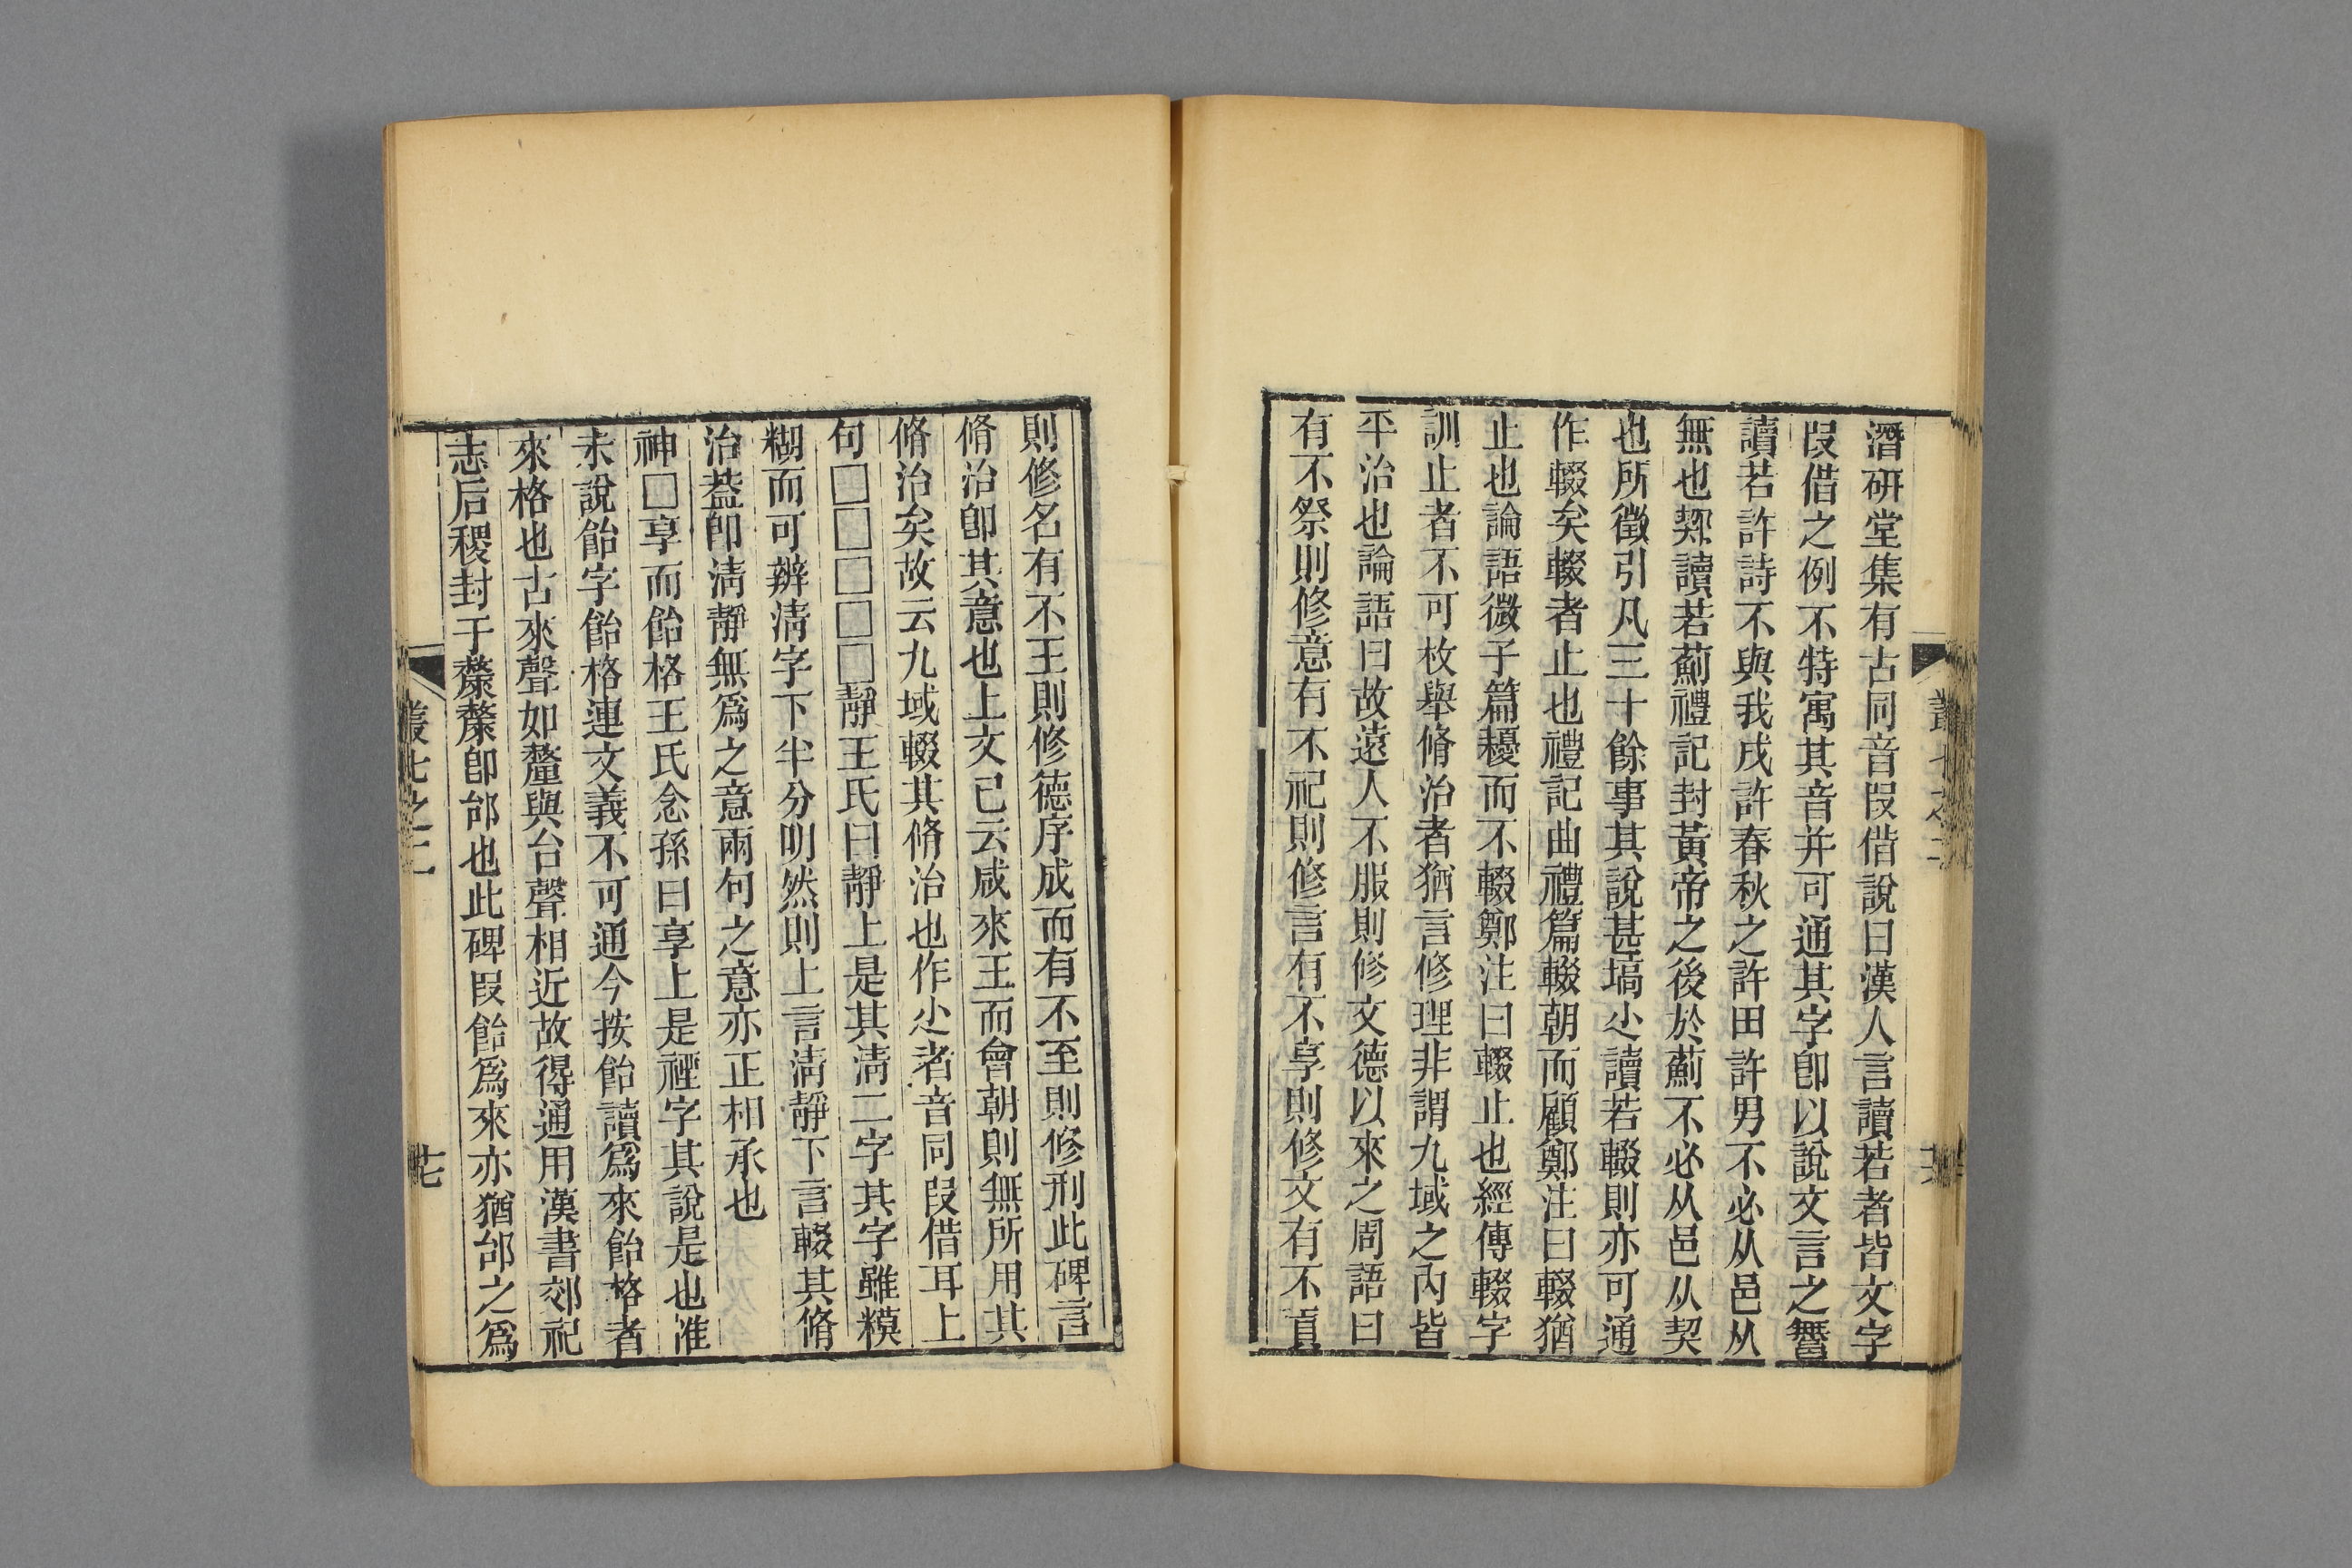 潛研堂集有古同音叚借說曰漢人言讀若者皆文字
叚借之例不特寓其音并可通其字卽以說文言之𨞬
讀若許詩不與我戍許春秋之許田許男不必从邑从
無也𨝸讀若薊禮記封黃帝之後於薊不必从邑从契
也所徵引凡三十餘事其說甚塙尐讀若輟則亦可通
作輟矣輟者止也禮記曲禮篇輟朝而顧鄭注曰輟猶
止也論語微子篇耰而不輟鄭注曰輟止也經傳輟字
訓止者不可枚舉脩治者猶言修理非謂九域之內皆
平治也論語曰故遠人不服則修文德以來之周語曰
有不祭則修意有不祀則修言有不享則修文有不貢
則修名有不王則修德序成而有不至則修刑此碑言
脩治卽其意也上文已云咸來王而會朝則無所用其
脩治矣故云九域輟其脩治也作尐者音同叚借耳上
句□□□□□靜王氏曰靜上是其淸二字其字雖糢
糊而可辨淸字下半分明然則上言淸靜下言輟其脩
治葢卽淸靜無爲之意兩句之意亦正相承也
神□享而飴格王氏念孫曰享上是禋字其說是也准
未說飴字飴格連文義不可通今按飴讀爲來飴格者
來格也古來聲如釐與台聲相近故得通用漢書郊祀
志后稷封于斄斄卽邰也此碑叚飴爲來亦猶邰之爲
叢七之二
芒